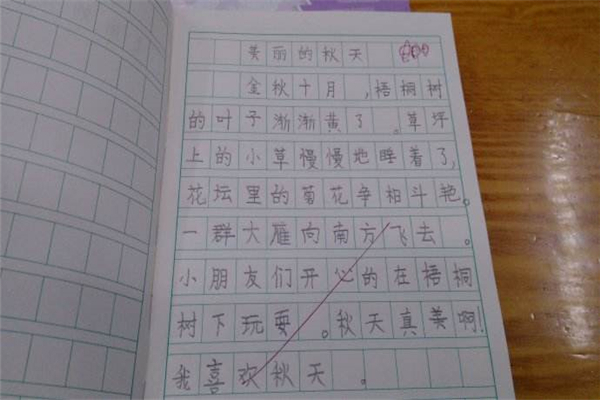 美丽的秋天
金秋十月,梧桐树
的叶子渐渐黄了。草坪
上的小草慢慢地睡着了,
花坛里的菊花争相斗艳。
一群大雁向南方飞去。
小朋友们开心的在梧桐
树下玩耍。秋天真美啊!
我喜欢秋天。